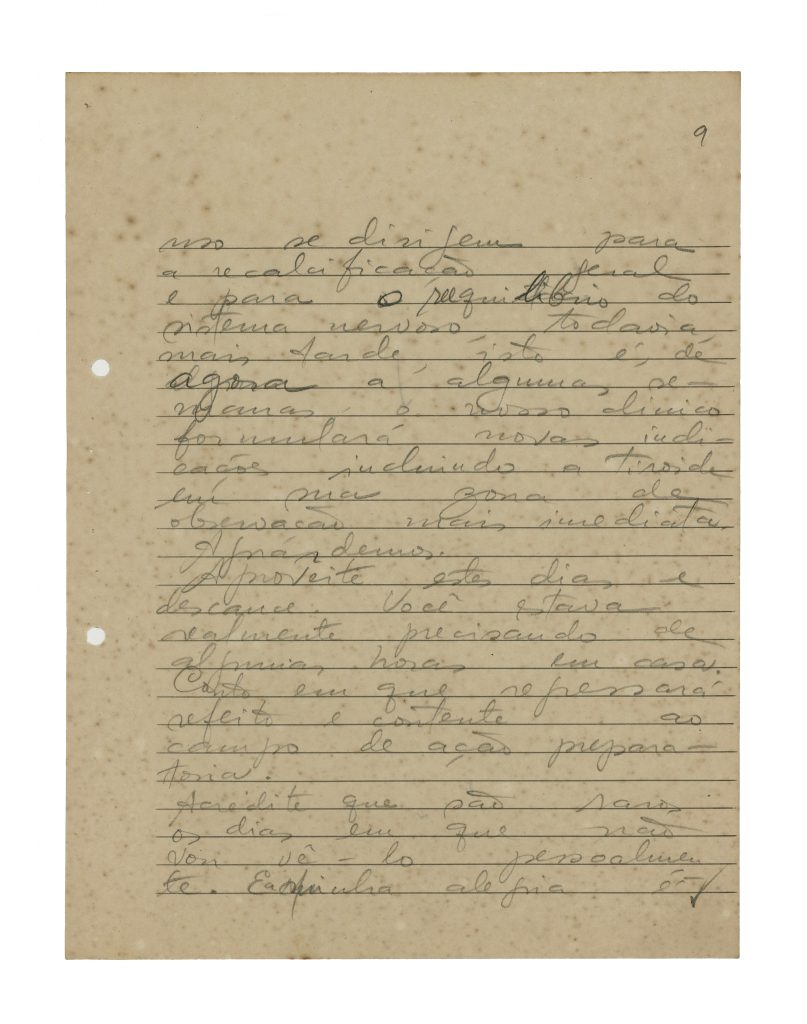 9
nso se dirigem para
a recalcificação geral
e para o reequilibrio do
sistema nervoso, todavia,
mais tarde, isto é, de
agora a algumas se-
manas, o nosso clinico
formulará novas indi-
cações incluindo a tiroide
em sua zona de
observação mais imediata.
Aguardemos.
Aproveite estes dias e
descance. Você estava
realmente precisando de
algumas horas em casa.
Conto em que regressará
refeito e contente ao
campo de ação prepara-
toria.
Acredite que são raros
os dias em que não
vou vê-lo pessoalmen
te. E a minha alegria é